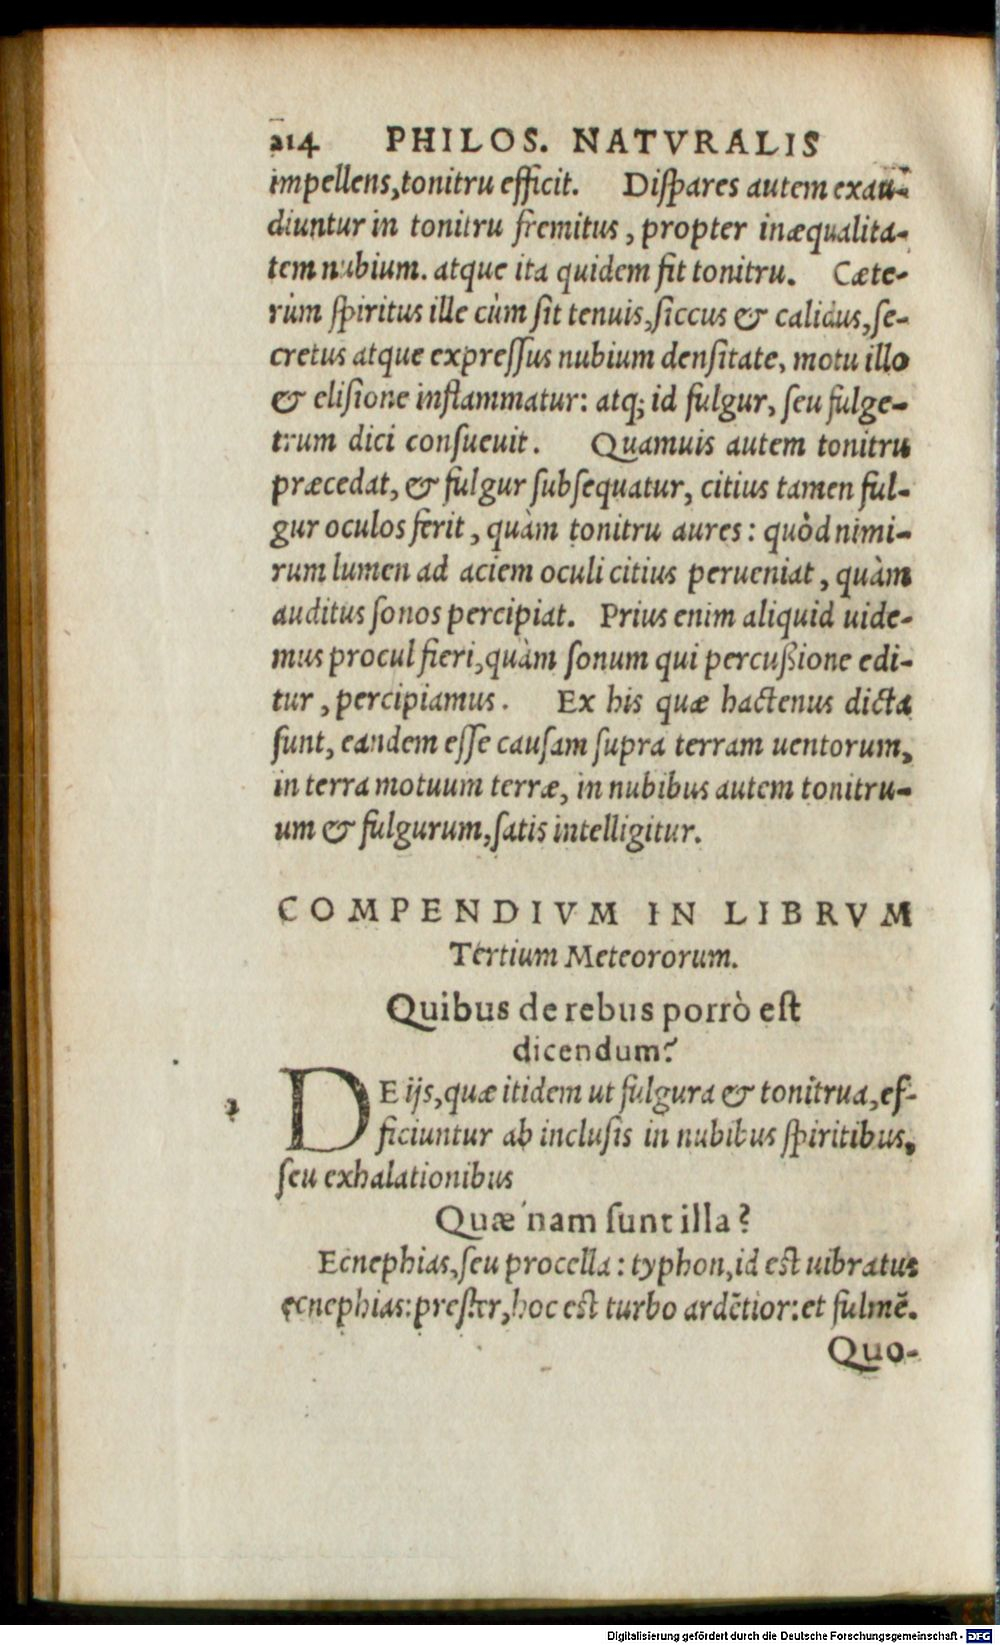 214 PHILOS. NATVRALIS
impellens, tonitru efficit. Diſpares autem exau-
diuntur in tonitru fremitus, propter inæqualita-
tem nubium. atque ita quidem fit tonitru. Cæte-
rùm ſpiritus ille cùm ſit tenuis, ſiccus & calidus, ſe-
cretus atque expreſſus nubium denſitate, motu illo
& eliſione inflammatur: atq; id fulgur, ſeu fulge-
trum dici conſueuit. Quamuis autem tonitru
præcedat, & fulgur ſubſequatur, citius tamen ful-
gur oculos ferit, quàm tonitru aures: quòd nimi-
rum lumen ad aciem oculi citius perueniat, quàm
auditus ſonos percipiat. Prius enim aliquid uide-
mus procul fieri, quàm ſonum qui percußione edi-
tur, percipiamus. Ex his quæ hactenus dicta
ſunt, eandem eſſe cauſam ſupra terram uentorum,
in terra motuum terræ, in nubibus autem tonitru-
um & fulgurum, ſatis intelligitur.
COMPENDIVM IN LIBRVM
Tertium Meteororum.
Quibus de rebus porrò eſt
dicendum?
DE ijs, quæ itidem ut fulgura & tonitrua, ef-
ficiuntur ab incluſis in nubibus ſpiritibus,
ſeu exhalationibus
Quæ nam ſunt illa?
Ecnephias, ſeu procella: typhon, id eſt uibratus
ecnephias: preſter, hoc eſt turbo ardẽtior: et fulmẽ.
Quo-
Digitalisierung gefördert durch die Deutsche Forschungsgemeinschaft - DFG